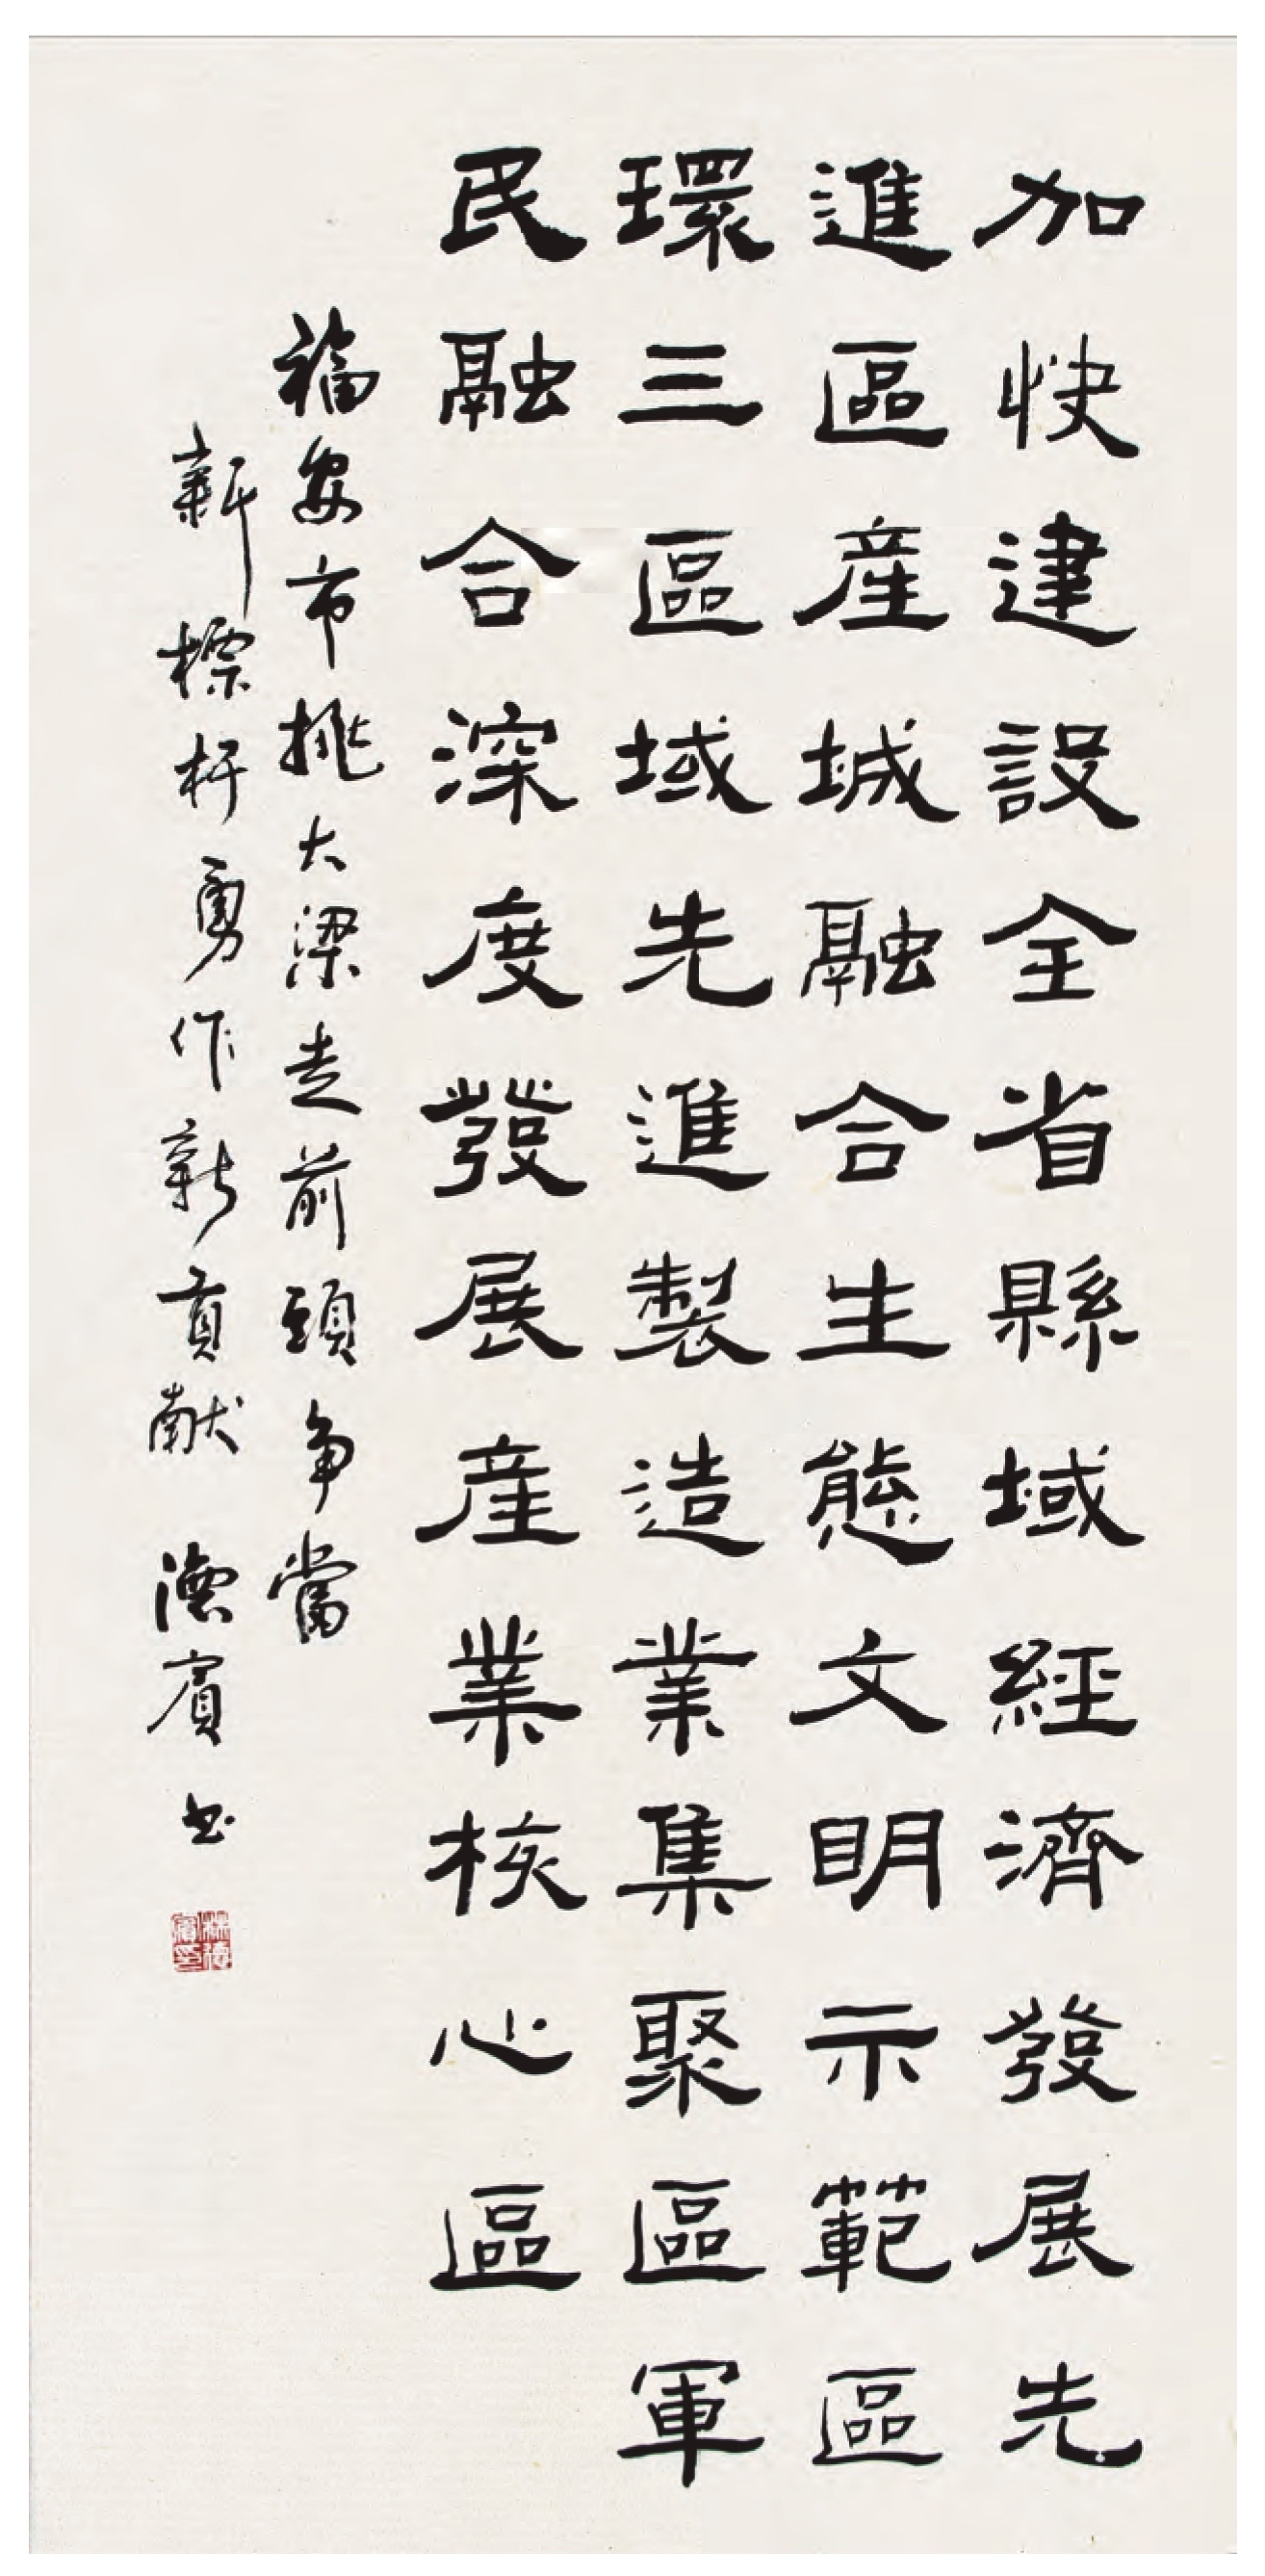 加快建設全省縣域經濟發展先
進區産城融合生態文明示範區
環三區域先進製造業集聚區軍
民融合深度發展産業核心區
福安市挑大梁走前頭争當
新標杆勇作新貢献 德賓书